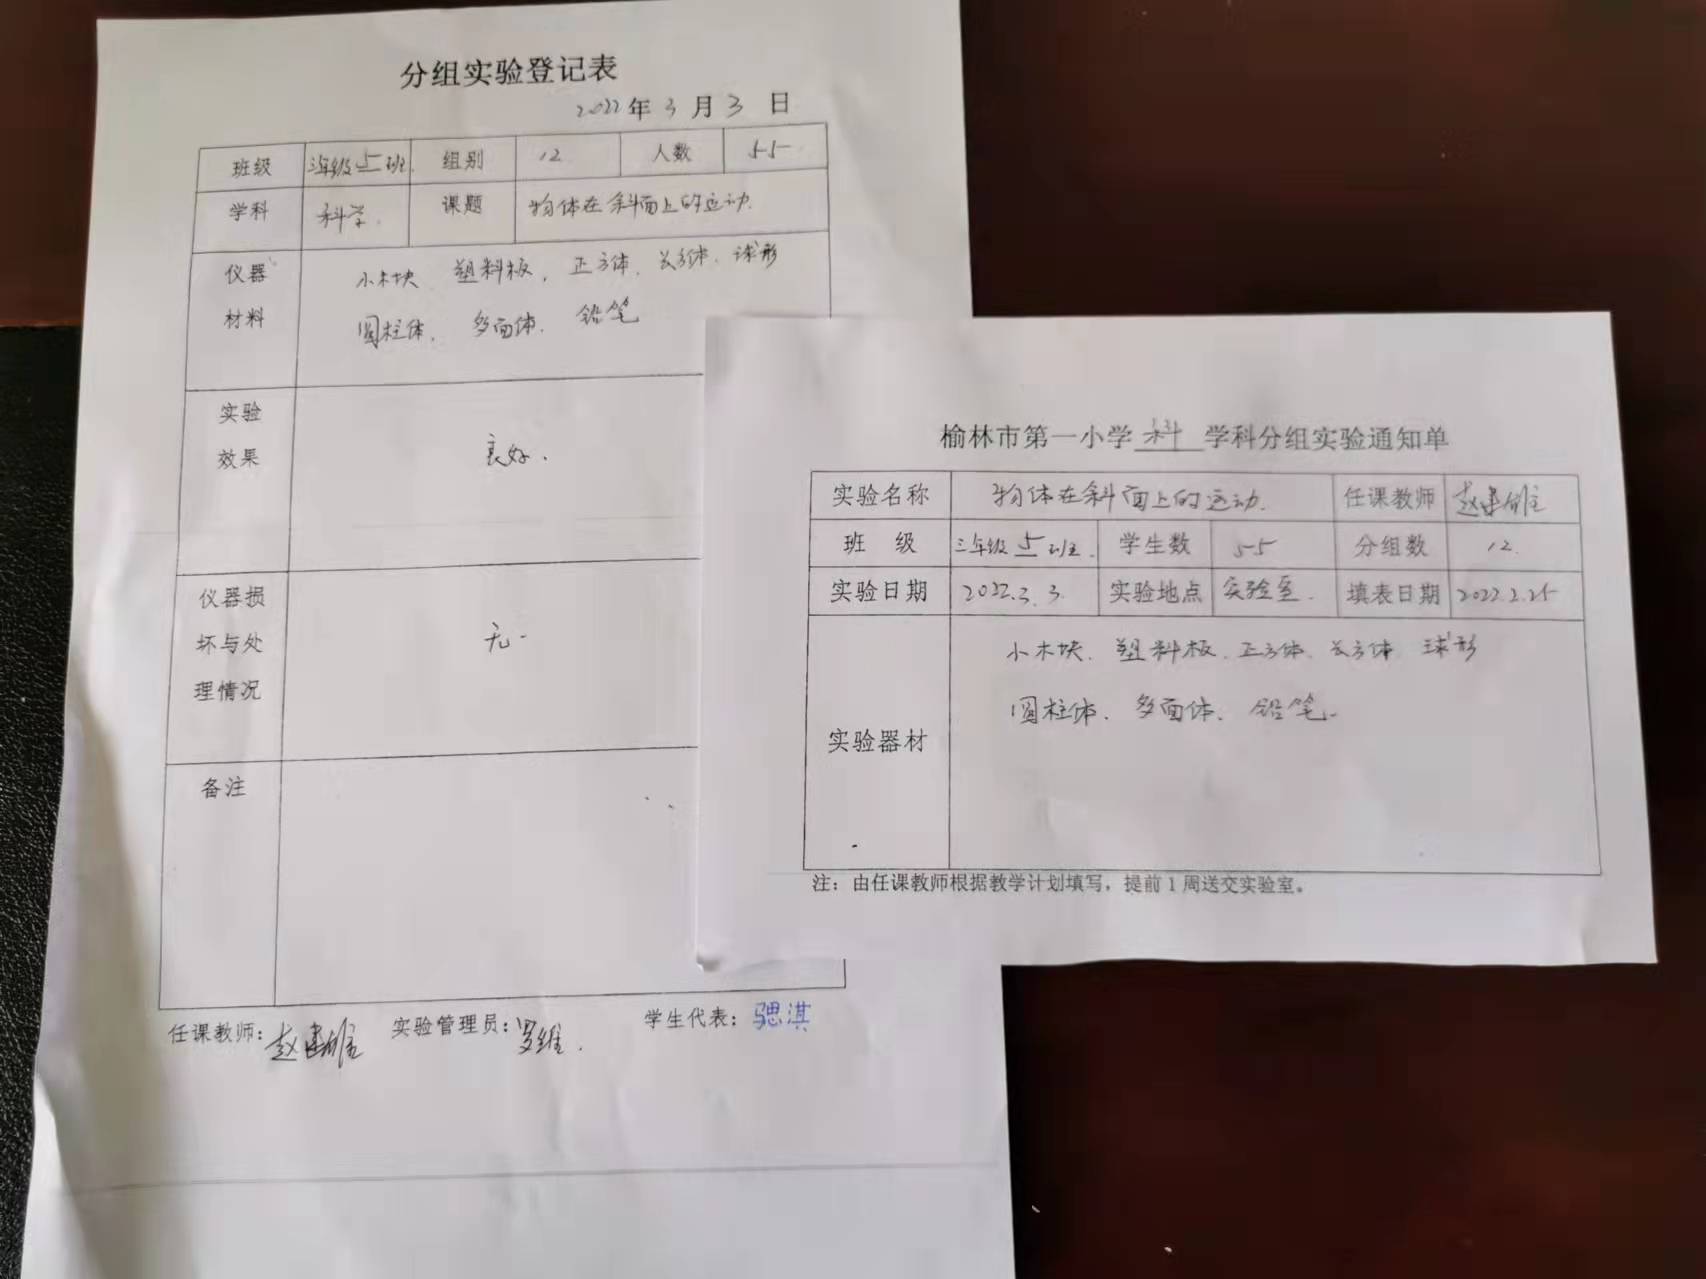 分组实验登记表
2022年3月3日
班级 三年级五班 组别 12 人数 55
学科 科学 课题 物体在斜面上的运动
仪器材料 小木块、塑料板、正方体、长方体、球形
圆柱体、多面体、铅笔
实验效果 良好.
仪器损坏与处理情况 无
备注
任课教师: 赵建雄 实验管理员: 罗维 学生代表: 骢淇
榆林市第一小学 科 学科分组实验通知单
实验名称 物体在斜面上的运动. 任课教师 赵建雄
班 级 三年级五班 学生数 55 分组数 12
实验日期 2022.3.3 实验地点 实验室. 填表日期 2022.2.25
实验器材 小木块、塑料板、正方体、长方体、球形
圆柱体、多面体、铅笔.
注：由任课教师根据教学计划填写，提前1周送交实验室。